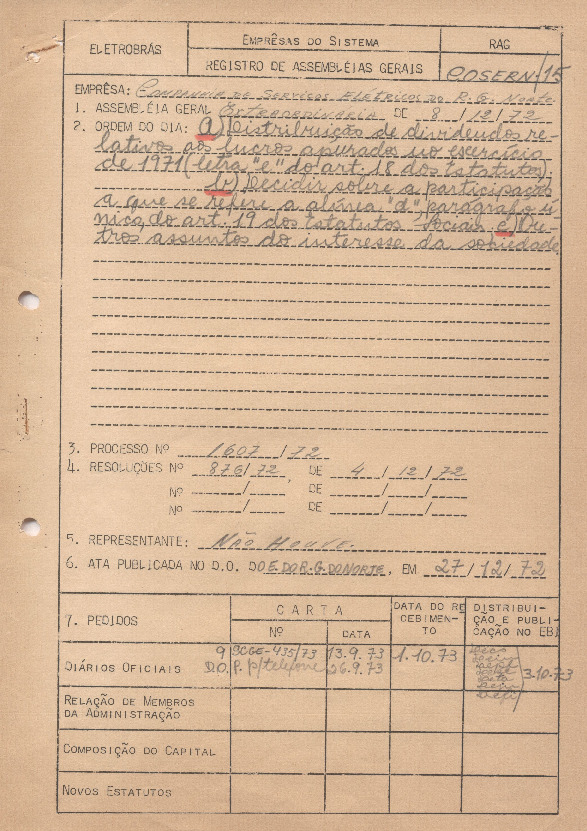 ELETROBRÁS
EMPRÊSAS DO SISTEMA
RAG
REGISTRO DE ASSEMBLÉIAS GERAIS
COSERN/15
EMPRÊSA: COMPANHIA DE SERVIÇOS ELÉTRICOS DO R.G. NORTE
1. ASSEMBLÉIA GERAL EXTRAORDINÁRIA DE 8/12/72
2. ORDEM DO DIA: a) Distribuição de dividendos re-
lativos aos lucros apurados no exercício
de 1971 (letra "e" do art. 18 dos Estatutos);
b) Decidir sôbre a participação
a que se refere a alínea "d", parágrafo ú-
nico, do art. 19 dos Estatutos Sociais c) Ou-
tros assuntos do interesse da sociedade.
3. PROCESSO Nº 1607/72
4. RESOLUÇÕES Nº 876/72, DE 4/12/72
Nº / DE / /
Nº / DE / /
5. REPRESENTANTE: NÃO HOUVE.
6. ATA PUBLICADA NO D.O. DO E. DO R.G. DO NORTE, EM 27/12/72
7. PEDIDOS
CARTA
Nº
DATA
DATA DO RE
CEBIMEN-
TO
DISTRIBUI-
ÇÃO E PUBLI-
CAÇÃO NO EBI
DIÁRIOS OFICIAIS
9 SCGE-435/73 13.9.73 1.10.73
D.O.R. p/telefone 26.9.73
3.10.73
RELAÇÃO DE MEMBROS
DA ADMINISTRAÇÃO
COMPOSIÇÃO DO CAPITAL
NOVOS ESTATUTOS